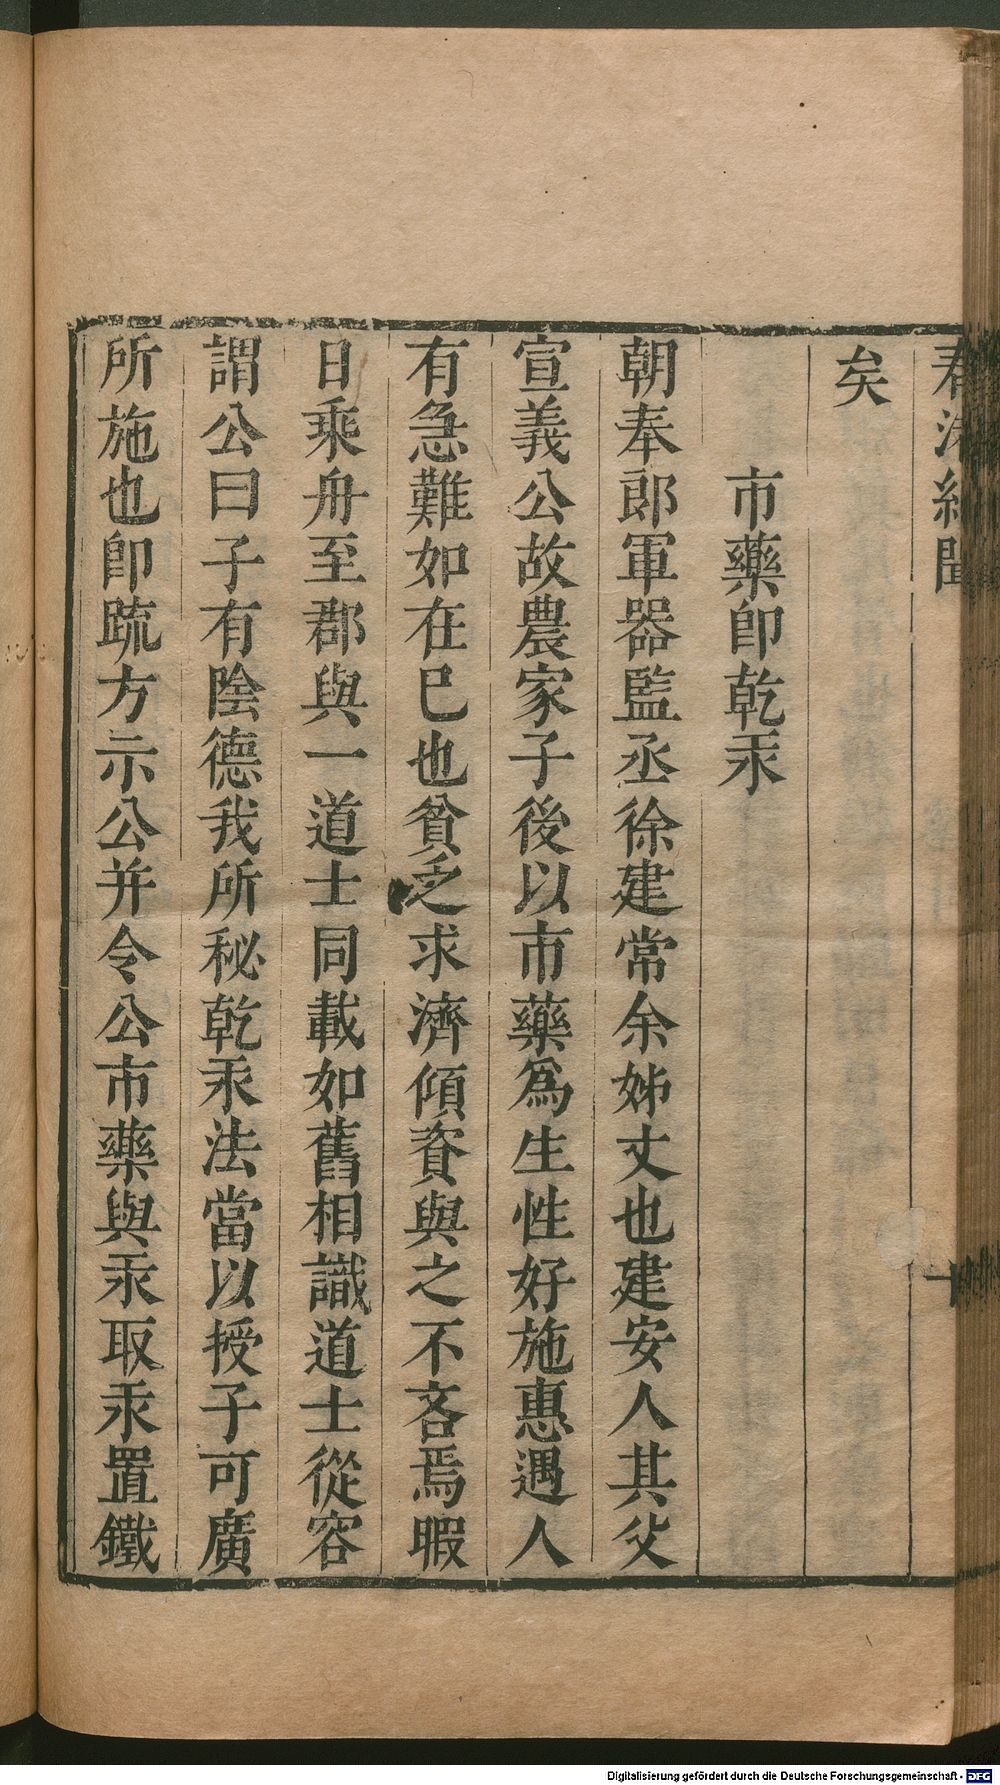 春渚紀聞
十
矣
市藥卽乾汞
朝奉郎軍器監丞徐建常余姊丈也建安人其父
宣義公故農家子後以市藥爲生性好施惠遇人
有急難如在已也貧乏求濟傾資與之不吝焉暇
日乘舟至郡與一道士同載如舊相識道士從容
謂公曰子有陰德我所秘乾汞法當以授子可廣
所施也卽疏方示公并令公市藥與汞取汞置鐵
Digitalisierung gefördert durch die Deutsche Forschungsgemeinschaft - DFG